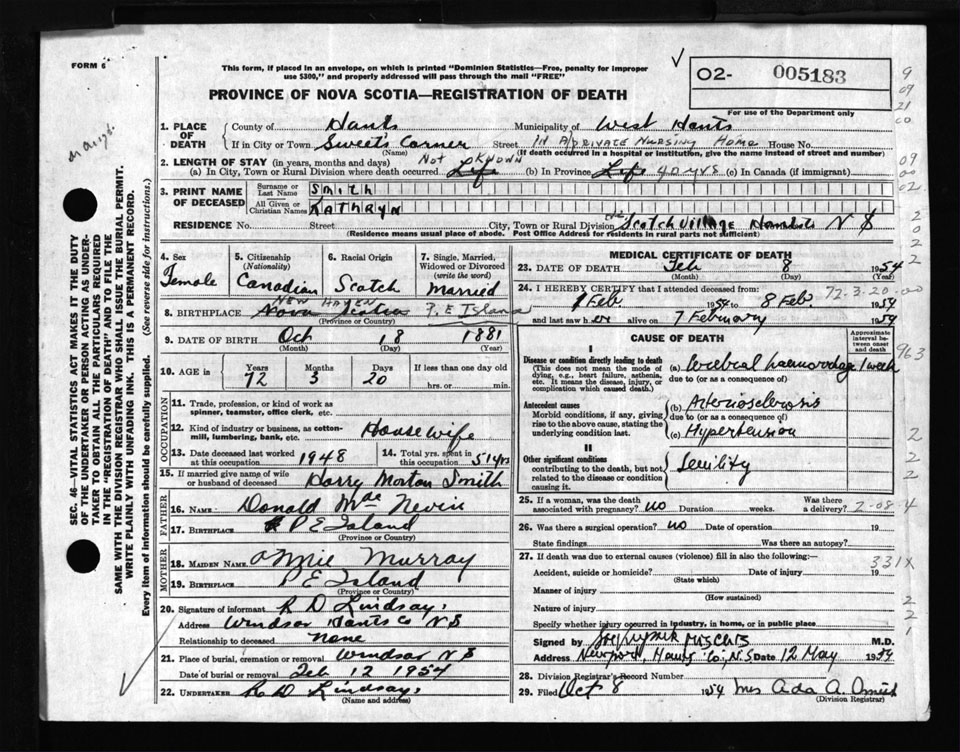 FORM 6
This form, if placed in an envelope, on which is printed "Dominion Statistics—Free, penalty for improper
use $300," and properly addressed will pass through the mail "FREE"
PROVINCE OF NOVA SCOTIA—REGISTRATION OF DEATH
02- 005183
For use of the Department only
1. PLACE OF DEATH
County of Hants Municipality of West Hants
If in City or Town Sweet's Corner Street in a private Nursing Home House No.
(Name) (If death occurred in a hospital or institution, give the name instead of street and number)
2. LENGTH OF STAY (in years, months and days) Not known
(a) In City, Town or Rural Division where death occurred Life (b) In Province Life 40 yrs (c) In Canada (if immigrant)
3. PRINT NAME OF DECEASED
Surname or Last Name Smith
All Given or Christian Names Kathryn
RESIDENCE No. Street City, Town or Rural Division Scotch Village Hants N S
(Residence means usual place of abode. Post Office Address for residents in rural parts not sufficient)
SEC. 46—VITAL STATISTICS ACT MAKES IT THE DUTY
OF THE UNDERTAKER OR PERSON ACTING AS UNDER-
TAKER TO OBTAIN ALL THE PARTICULARS REQUIRED
IN THE "REGISTRATION OF DEATH" AND TO FILE THE
SAME WITH THE DIVISION REGISTRAR WHO SHALL ISSUE THE BURIAL PERMIT.
WRITE PLAINLY WITH UNFADING INK. THIS IS A PERMANENT RECORD.
Every item of information should be carefully supplied. (See reverse side for instructions.)
4. Sex Female
5. Citizenship (Nationality) Canadian
6. Racial Origin Scotch
7. Single, Married, Widowed or Divorced (write the word) Married
8. BIRTHPLACE New Haven Nova Scotia P. E Island
(Province or Country)
9. DATE OF BIRTH Oct 18 1881
(Month) (Day) (Year)
10. AGE in Years 72 Months 3 Days 20 If less than one day old
hrs. or min.
OCCUPATION
11. Trade, profession, or kind of work as
spinner, teamster, office clerk, etc.
12. Kind of industry or business, as cotton-
mill, lumbering, bank, etc. House wife
13. Date deceased last worked at this occupation 1948 14. Total yrs. spent in this occupation 51 yrs
15. If married give name of wife or husband of deceased Harry Morton Smith
FATHER
16. Name Donald Mac Nevin
17. Birthplace P E Island
(Province or Country)
MOTHER
18. Maiden Name Annie Murray
19. Birthplace P E Island
(Province or Country)
20. Signature of informant R D Lindsay
Address Windsor Hants Co N S
Relationship to deceased none
21. Place of burial, cremation or removal Windsor N S
Date of burial or removal Feb 12 1954
22. UNDERTAKER R D Lindsay
(Name and address)
MEDICAL CERTIFICATE OF DEATH
23. DATE OF DEATH Feb 8 1954
(Month) (Day) (Year)
24. I HEREBY CERTIFY that I attended deceased from: 72-3-20-00
1 Feb 1954 to 8 Feb 1954
and last saw her alive on 7 February 1954
CAUSE OF DEATH
Approximate interval between onset and death
963
I
Disease or condition directly leading to death
(This does not mean the mode of dying, e.g., heart failure, asthenia, etc. It means the disease, injury, or complication which caused death.)
(a) Cerebral haemorrhage 1 week
due to (or as a consequence of)
Antecedent causes
Morbid conditions, if any, giving rise to the above cause, stating the underlying condition last.
(b) Arteriosclerosis
due to (or as a consequence of)
(c) Hypertension
II
Other significant conditions
contributing to the death, but not related to the disease or condition causing it.
Senility
25. If a woman, was the death associated with pregnancy? no Duration weeks. Was there a delivery? 2-08-4
26. Was there a surgical operation? no Date of operation 19
State findings Was there an autopsy?
27. If death was due to external causes (violence) fill in also the following:—
331X
Accident, suicide or homicide? Date of injury 19
(State which)
Manner of injury
(How sustained)
Nature of injury
Specify whether injury occurred in industry, in home, or in public place
Signed by M.D.
Address Newport, Hants Co., N.S. Date 12 May 1954
28. Division Registrar's Record Number
29. Filed Oct 8 1954 Mrs Ada A. Smith
(Division Registrar)